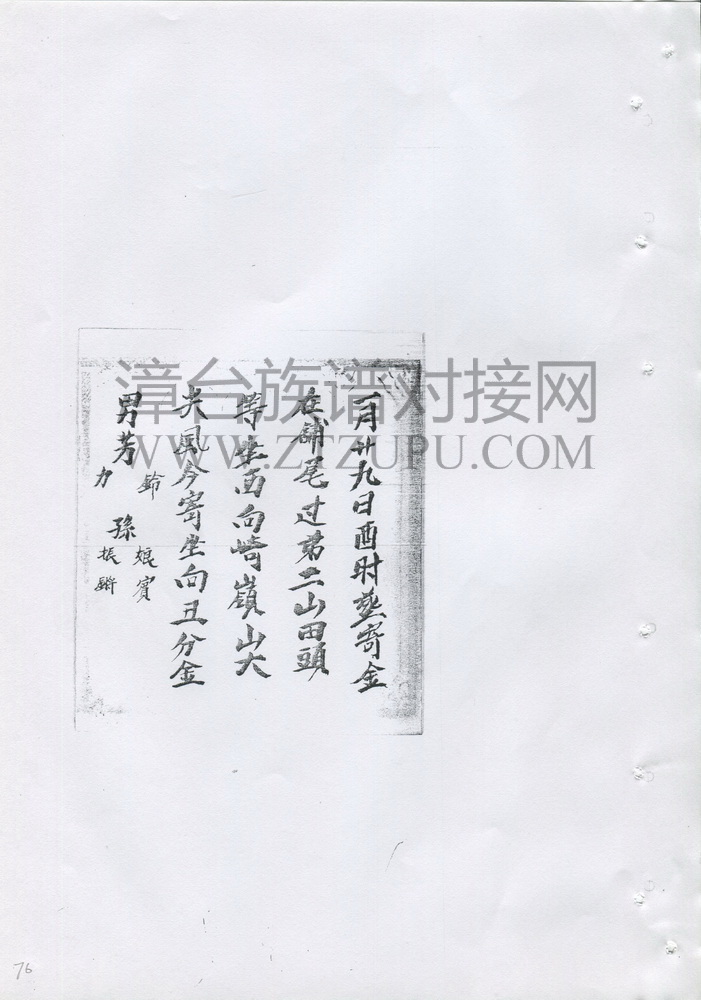 月廿九日酉时塟寄金
在舖尾过第二山田頭
坐西向崎嶺山大
风今寄坐向丑分金
男芳
鈴
力
孫
娘賓
振
漳台族谱对接网
WWW.ZTZUPU.COM
76